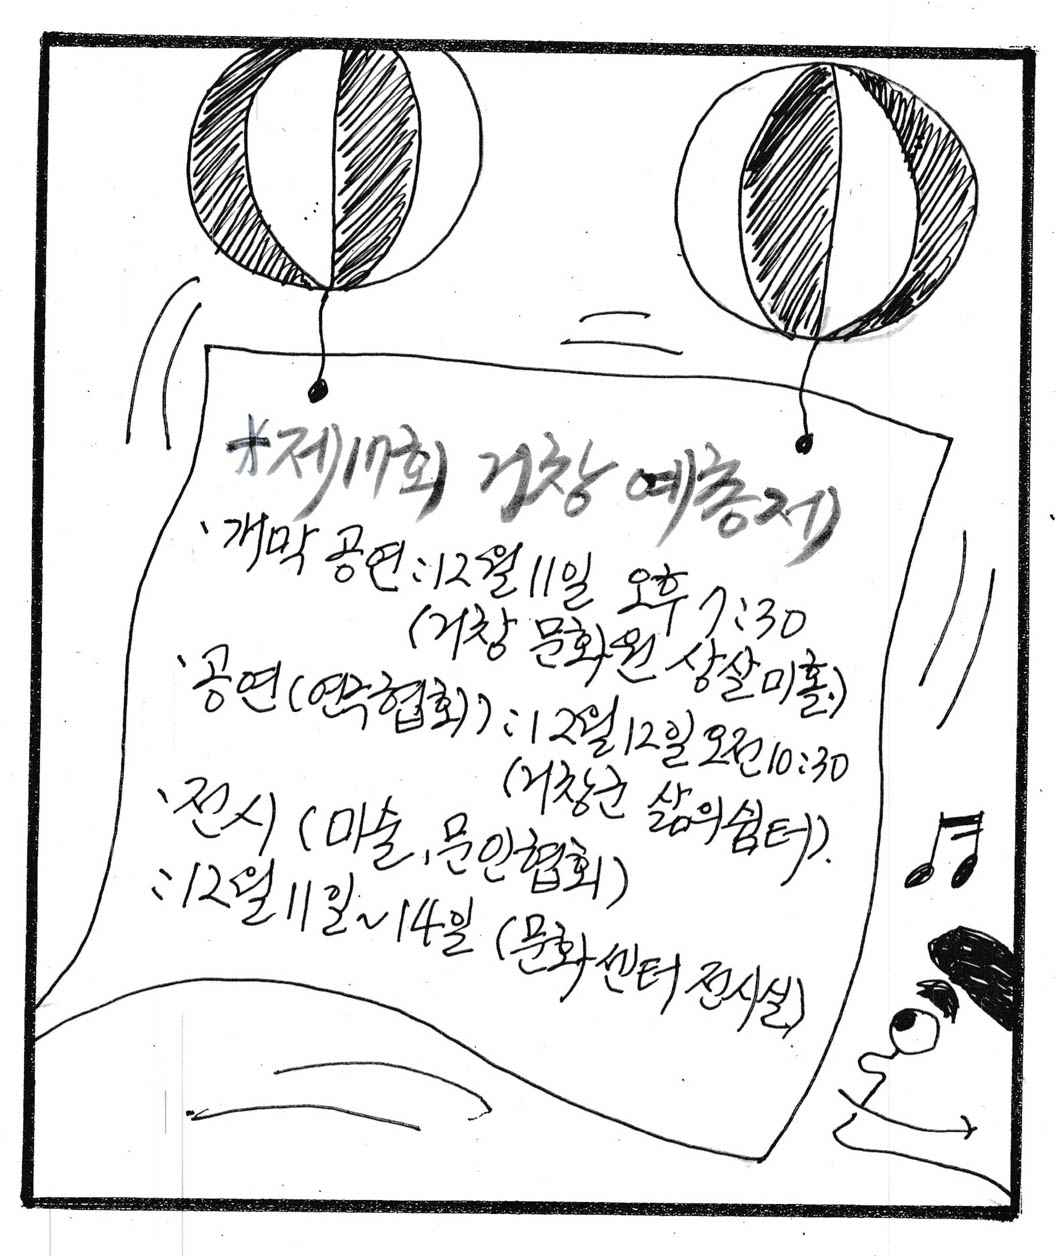 *제17회 거창 예총제
`개막 공연:12월 11일 오후 7:30
(거창 문화원 상살미홀)
`공연(연극협회):12월12일 오전10:30
(거창군 삶의쉼터).
`전시 (미술,문인협회)
:12월 11일~14일 (문화센터 전시실)